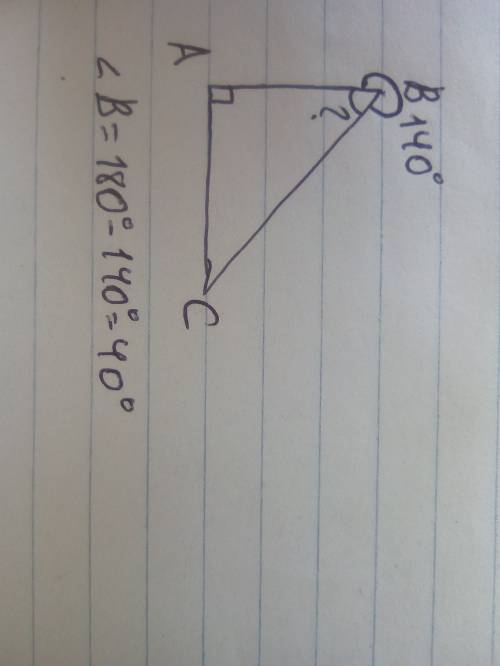 A
B 140°
?
C
∠ B = 180° - 140° = 40°